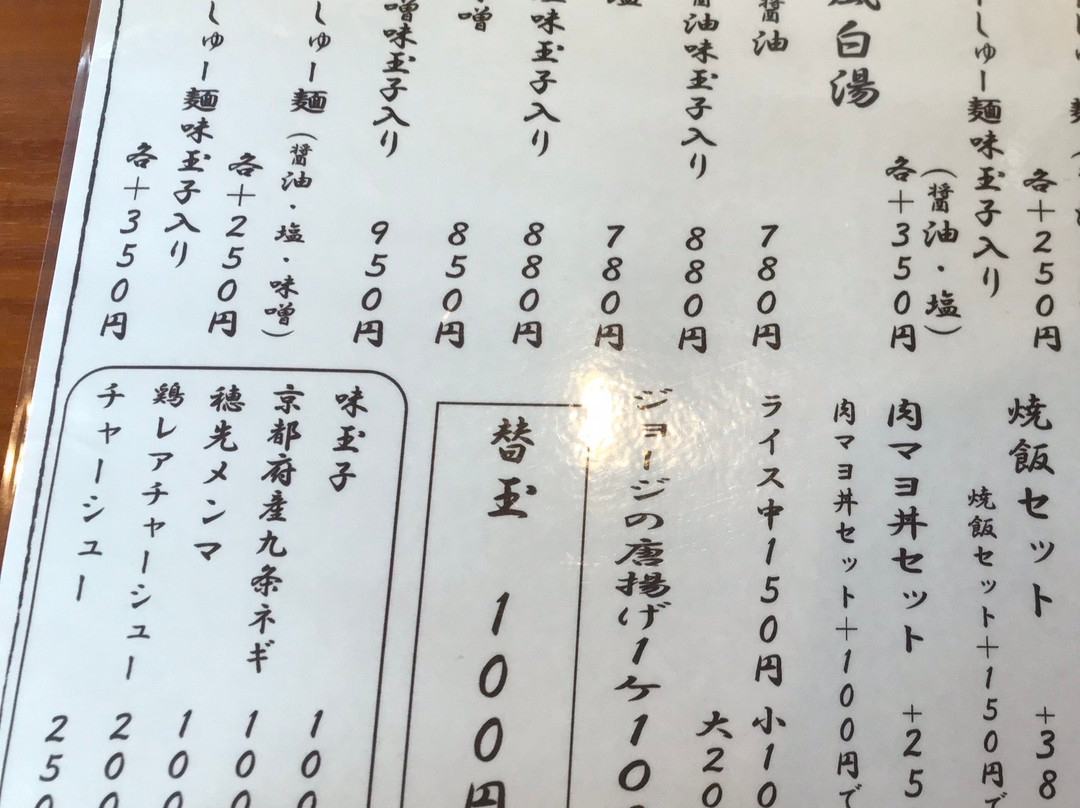 各+250円
しゅー麺味玉子入り
(醤油・塩)
各+350円
白湯
醤油
780円
醤油味玉子入り
880円
塩
780円
味玉子入り
880円
噌
850円
噌味玉子入り
950円
しゅー麺(醤油・塩・味噌)
各+250円
しゅー麺味玉子入り
各+350円
焼飯セット +38
焼飯セット+150円で
肉マヨ丼セット +25
肉マヨ丼セット+100円で
ライス中150円 小10
大20
ジョージの唐揚げ1ヶ10
替玉 100円
味玉子 100
京都府産九条ネギ 100
穂先メンマ 100
鶏レアチャーシュー 200
チャーシュー 250